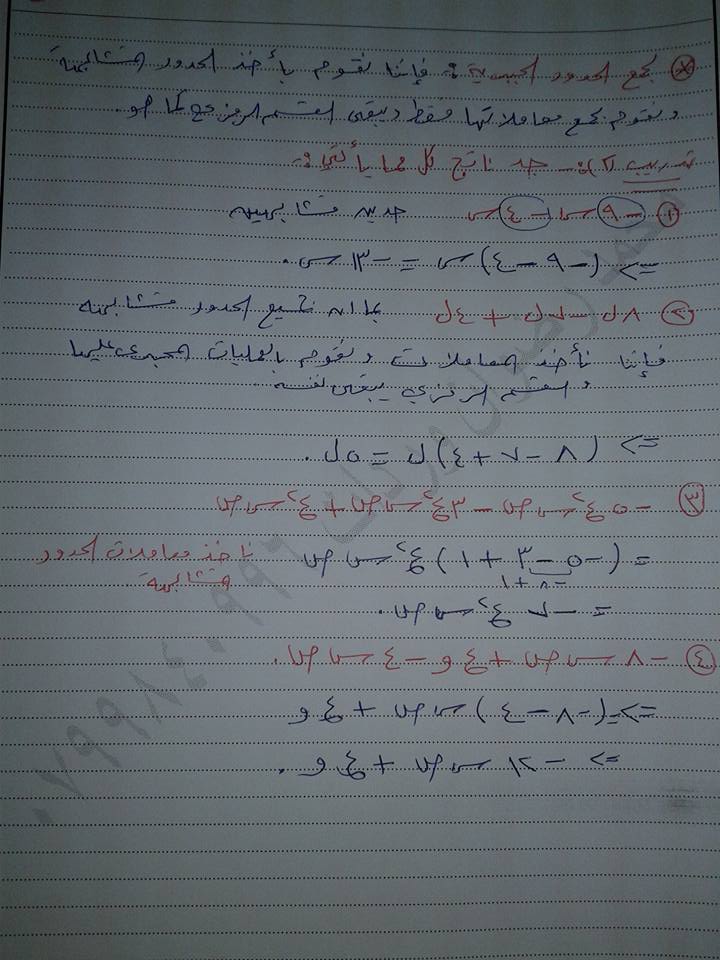 * بجمع الحدود الجبرية :. فإننا نقوم بأخذ الحدود متشابهة
ونقوم بجمع معاملاتها فقط ويبقى القسم الرمزي كما هو.
تدريب (٢) :- جد ناتج كل مما يأتي :-
① -٩س - ٤س حدين متشابهين
=> (-٩ - ٤) س = -١٣س.
② ٨ل - ٧ل + ٤ل بما أن جميع الحدود متشابهة
فإننا نأخذ المعاملات ونقوم بالعمليات الجبرية عليها
والقسم الرمزي يبقى نفسه
=> (٨ - ٧ + ٤) ل = ٥ل.
③ -٥ع²س ص - ٣ع²س ص + ع²س ص
= (-٥ - ٣ + ١) ع²س ص ناخذ معاملات الحدود
متشابهة
-٨ + ١
= -٧ ع²س ص.
④ -٨ س ص + ع و - ٤ س ص.
=> (-٨ - ٤) س ص + ع و
=> -١٢ س ص + ع و.